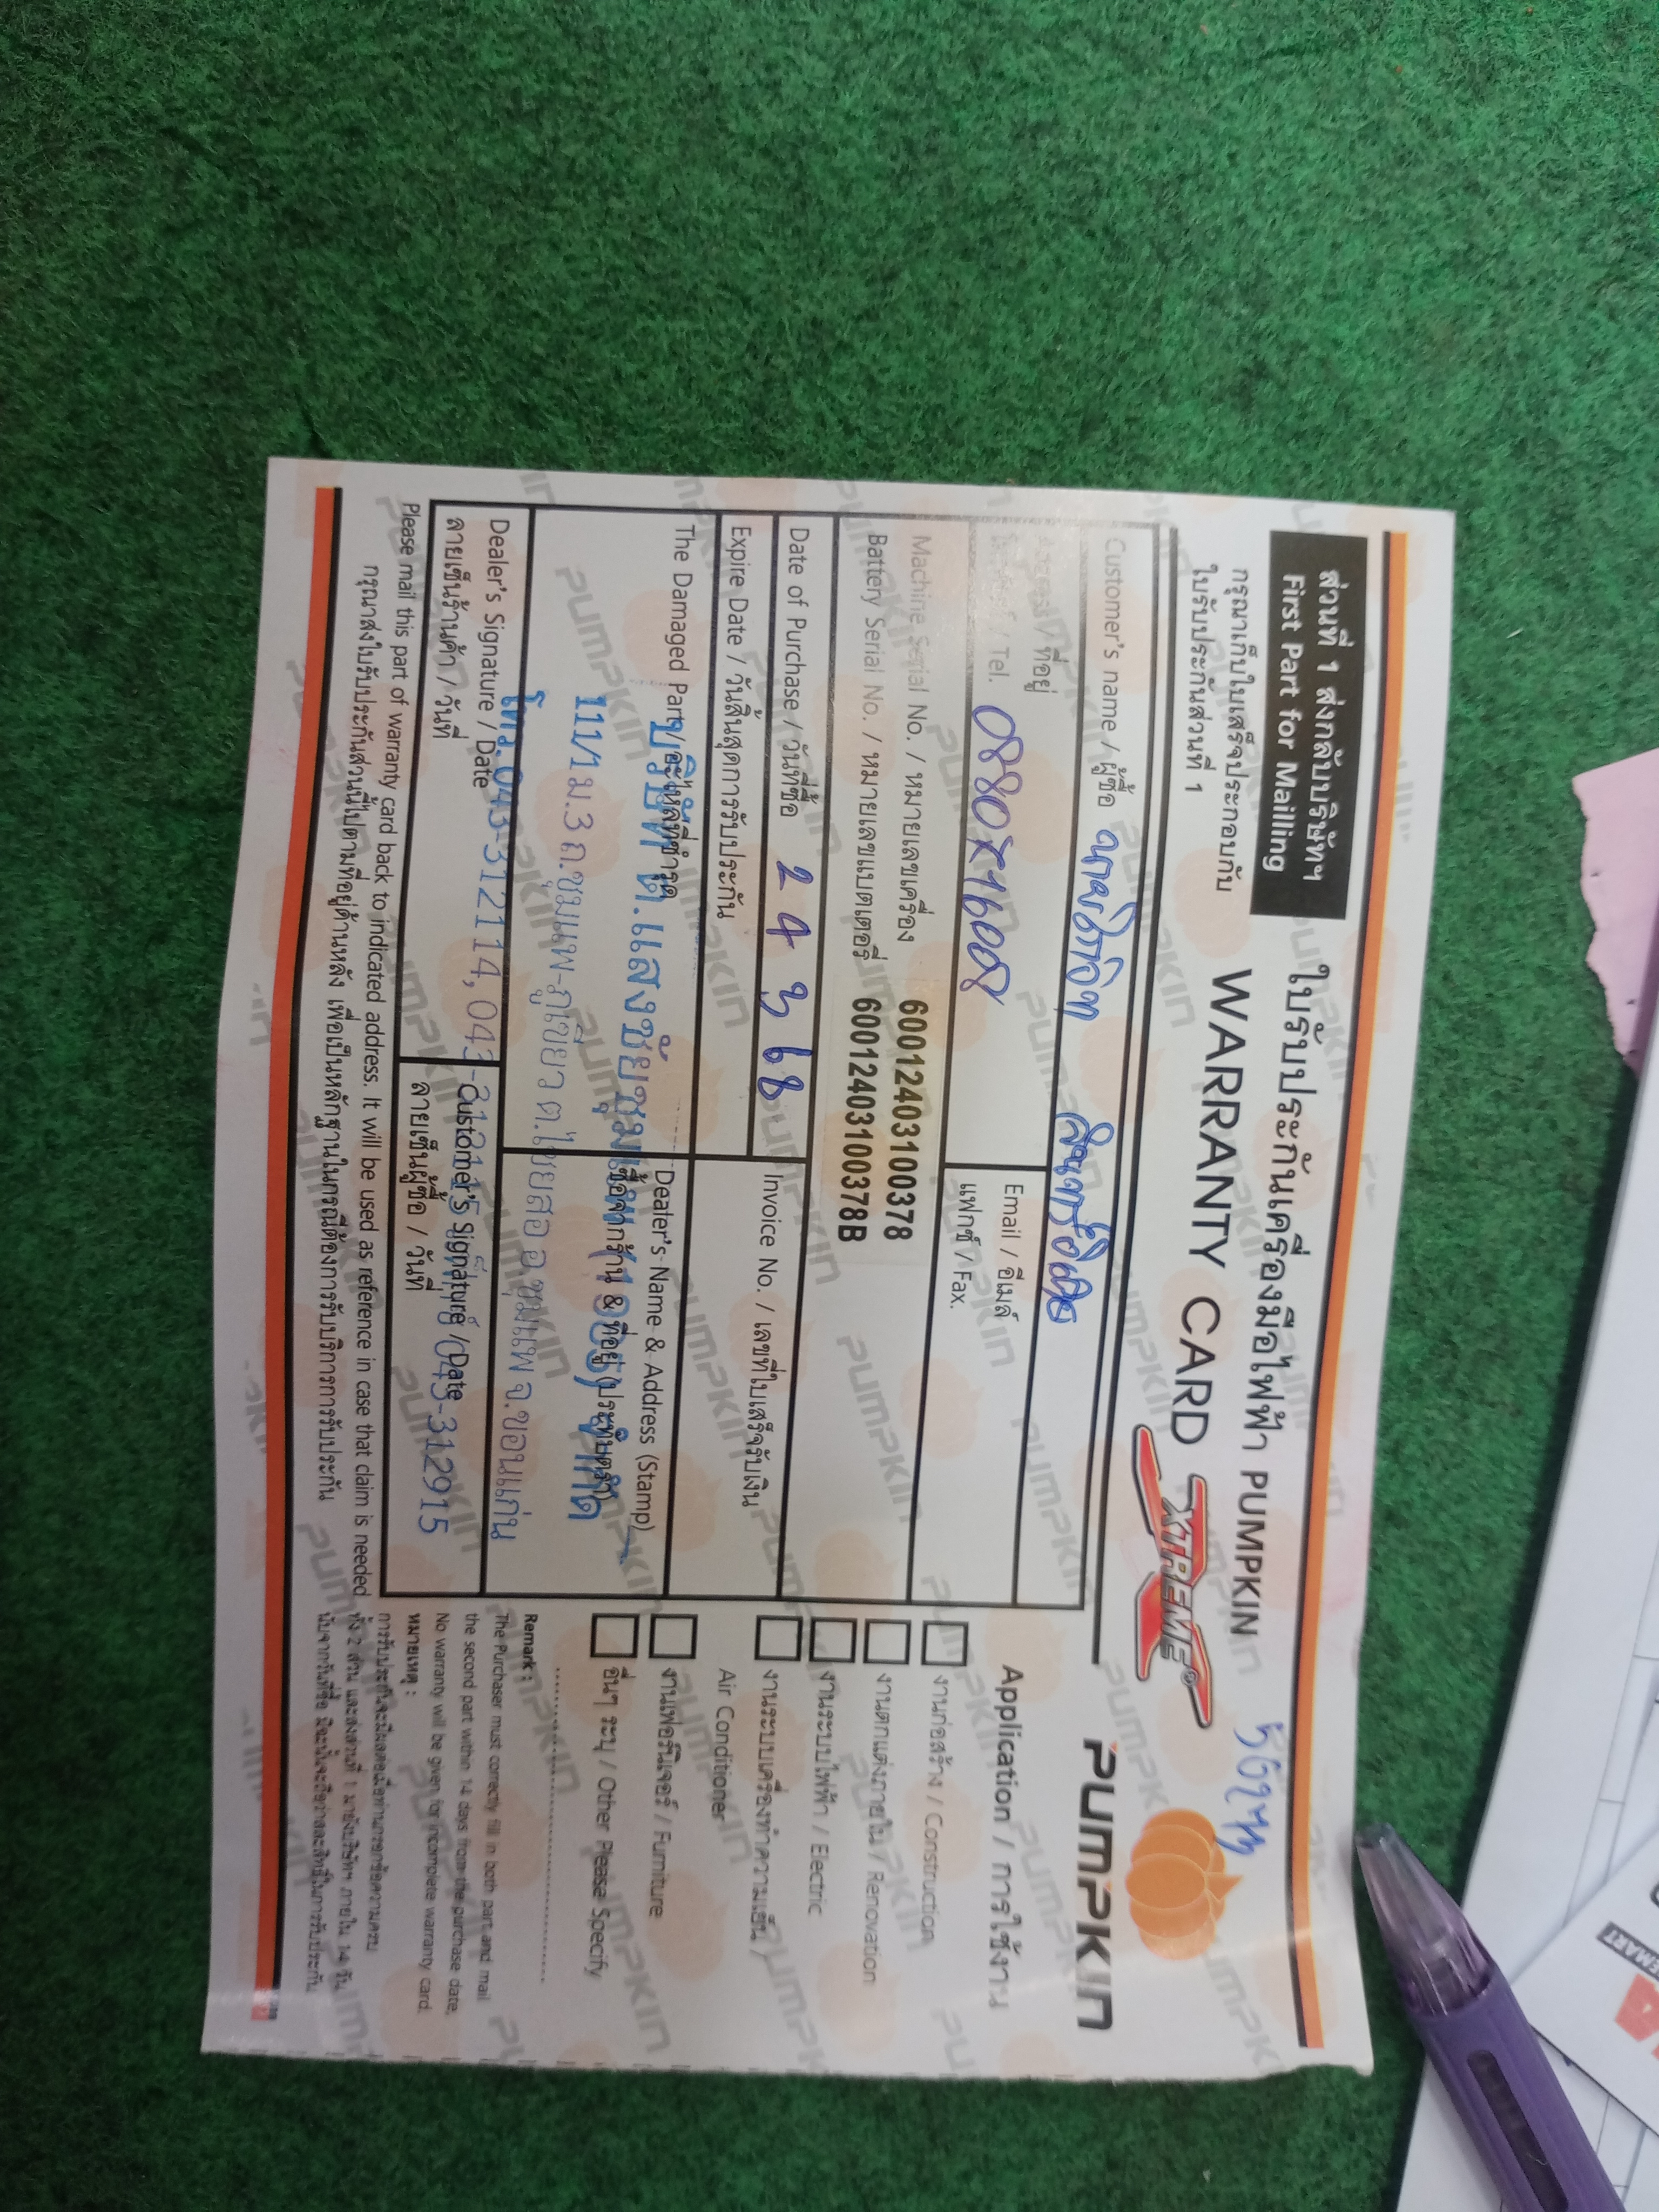 ส่วนที่ 1 ส่งกลับบริษัทฯ
First Part for Mailing
กรุณาเก็บใบเสร็จประกอบกับ
ใบรับประกันส่วนที่ 1
ใบรับประกันเครื่องมือไฟฟ้า PUMPKIN
WARRANTY CARD
XTREME®
PUMPKIN
Customer's name / ผู้ซื้อ
Address / ที่อยู่
Email / อีเมล์
/ Tel.
แฟกซ์ / Fax.
Machine Serial No. / หมายเลขเครื่อง 60012403100378
Battery Serial No. / หมายเลขแบตเตอรี่ 60012403100378B
Date of Purchase / วันที่ซื้อ 2 4 3 68
Invoice No. / เลขที่ใบเสร็จรับเงิน
Expire Date / วันสิ้นสุดการรับประกัน
The Damaged Part / อะไหล่ที่ชำรุด
Dealer's Name & Address (Stamp)
ชื่อจากร้าน & ที่อยู่ (ประทับตรา)
บริษัท ต.แสงชัยชุมแพ (1985) จำกัด
111/1 ม.3 ถ.ชุมแพ-ภูเขียว ต.ไชยสอ อ.ชุมแพ จ.ขอนแก่น
โทร. 043-312114, 043-312115 043-312915
Dealer's Signature / Date
ลายเซ็นร้านค้า / วันที่
Customer's Signature / Date
ลายเซ็นผู้ซื้อ / วันที่
Please mail this part of warranty card back to indicated address. It will be used as reference in case that claim is needed
กรุณาส่งใบรับประกันส่วนนี้ไปตามที่อยู่ด้านหลัง เพื่อเป็นหลักฐานในกรณีต้องการรับบริการการรับประกัน
Application / การใช้งาน
งานก่อสร้าง / Construction
งานตกแต่งภายใน / Renovation
งานระบบไฟฟ้า / Electric
งานระบบเครื่องทำความเย็น /
Air Conditioner
งานเฟอร์นิเจอร์ / Furniture
อื่นๆ ระบุ / Other Please Specify
Remark :
The Purchaser must correctly fill in both part and mail
the second part within 14 days from the purchase date,
No warranty will be given for incomplete warranty card.
หมายเหตุ :
การรับประกันจะมีผลต่อเมื่อท่านกรอกข้อความครบ
ทั้ง 2 ส่วน และส่งส่วนที่ 1 มายังบริษัทฯ ภายใน 14 วัน
นับจากวันที่ซื้อ มิฉะนั้นจะถือว่าสละสิทธิ์ในการรับประกัน